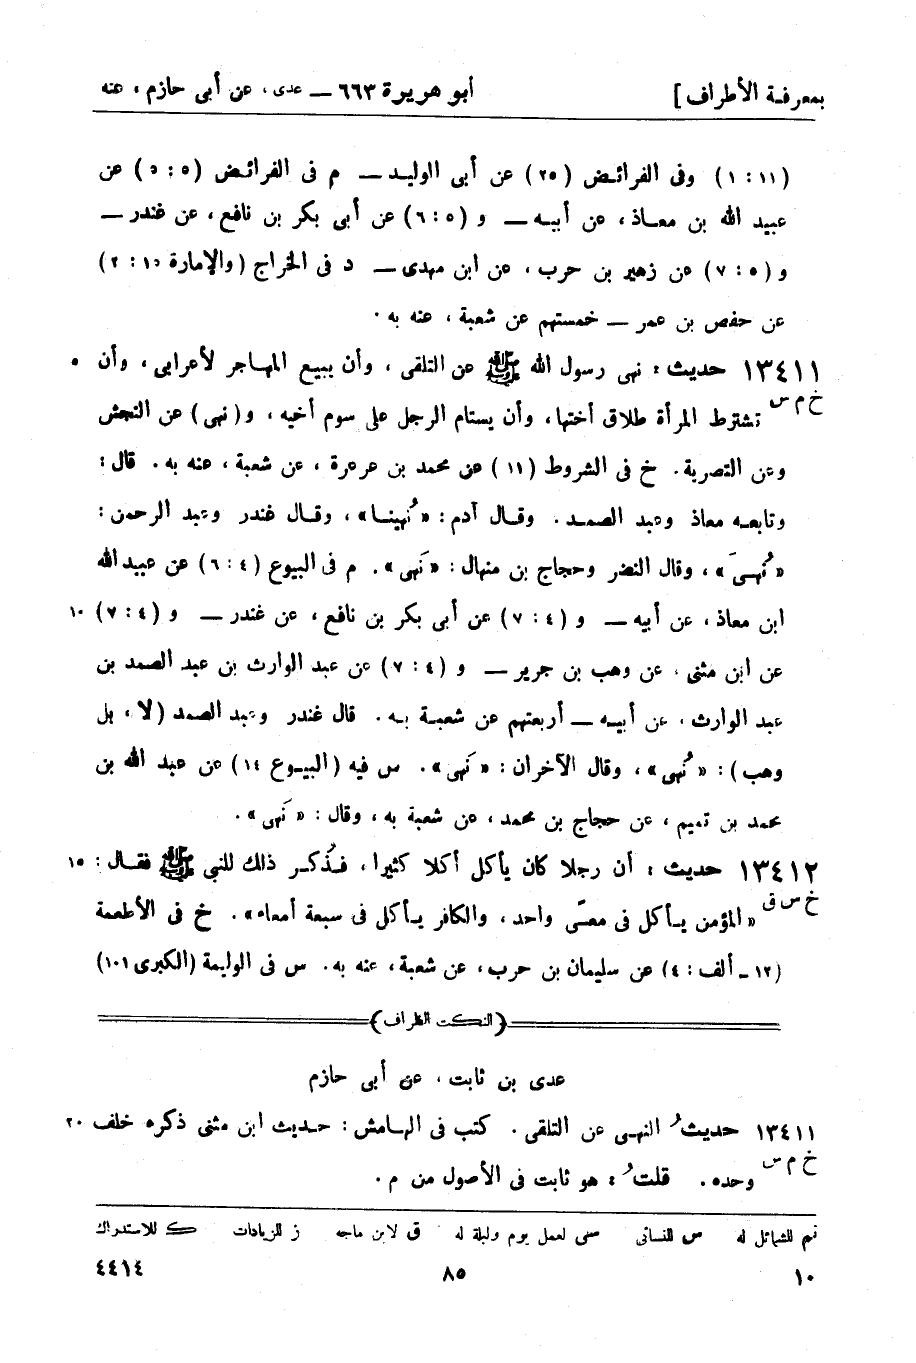 بمعرفة الأطراف] أبو هريرة ٦٦٣ — عدى، عن أبى حازم، عنه
(١١ : ١) وفى الفرائض (٢٥) عن أبى الوليد — م فى الفرائض (٥ : ٥) عن
عبيد الله بن معاذ، عن أبيه — و (٥ : ٦) عن أبى بكر بن نافع، عن غندر —
و (٥ : ٧) عن زهير بن حرب، عن ابن مهدى — د فى الخراج (والإمارة ١٥ : ٢)
عن حفص بن عمر — خمستهم عن شعبة، عنه به.
١٣٤١١ حديث: نهى رسول الله ﷺ عن التلقى، وأن يبيع المهاجر لأعرابى، وأن ٥
خ م س تشترط المرأة طلاق أختها، وأن يستام الرجل على سوم أخيه، و(نهى) عن النجش
وعن التصرية. خ فى الشروط (١١) عن محمد بن عرعرة، عن شعبة، عنه به. قال:
وتابعه معاذ وعبد الصمد. وقال آدم: «نُهينا»، وقال غندر وعبد الرحمن:
«نُهىَ»، وقال النضر وحجاج بن منهال: «نَهى». م فى البيوع (٤ : ٦) عن عبيد الله
ابن معاذ، عن أبيه — و (٤ : ٧) عن أبى بكر بن نافع، عن غندر — و (٤ : ٧) ١٠
عن ابن مثنى، عن وهب بن جرير — و (٤ : ٧) عن عبد الوارث بن عبد الصمد بن
عبد الوارث، عن أبيه — أربعتهم عن شعبة به. قال غندر وعبد الصمد (لا، بل
وهب): «نُهى»، وقال الآخران: «نَهى». س فيه (البيوع ١٤) عن عبد الله بن
محمد بن تميم، عن حجاج بن محمد، عن شعبة به، وقال: «نَهى».
١٣٤١٢ حديث: أن رجلا كان يأكل أكلا كثيرا، فذُكر ذلك للنبي ﷺ فقال: ١٥
خ س ق «المؤمن يأكل فى معىً واحد، والكافر يأكل فى سبعة أمعاء». خ فى الأطعمة
(١٢ - ألف : ٤) عن سليمان بن حرب، عن شعبة، عنه به. س فى الوليمة (الكبرى ١٠١)
(النكت الظراف)
عدى بن ثابت، عن أبى حازم
١٣٤١١ حديثُ النهى عن التلقى. كتب فى الهامش: حديث ابن مثنى ذكره خلف ٢٠
خ م س وحده. قلتُ: هو ثابت فى الأصول من م.
تم للشمائل له س للنسائى سى لعمل يوم وليلة له ق لابن ماجه ز للزيادات ك للاستدراك
١٠ ٨٥ ٤٤١٤